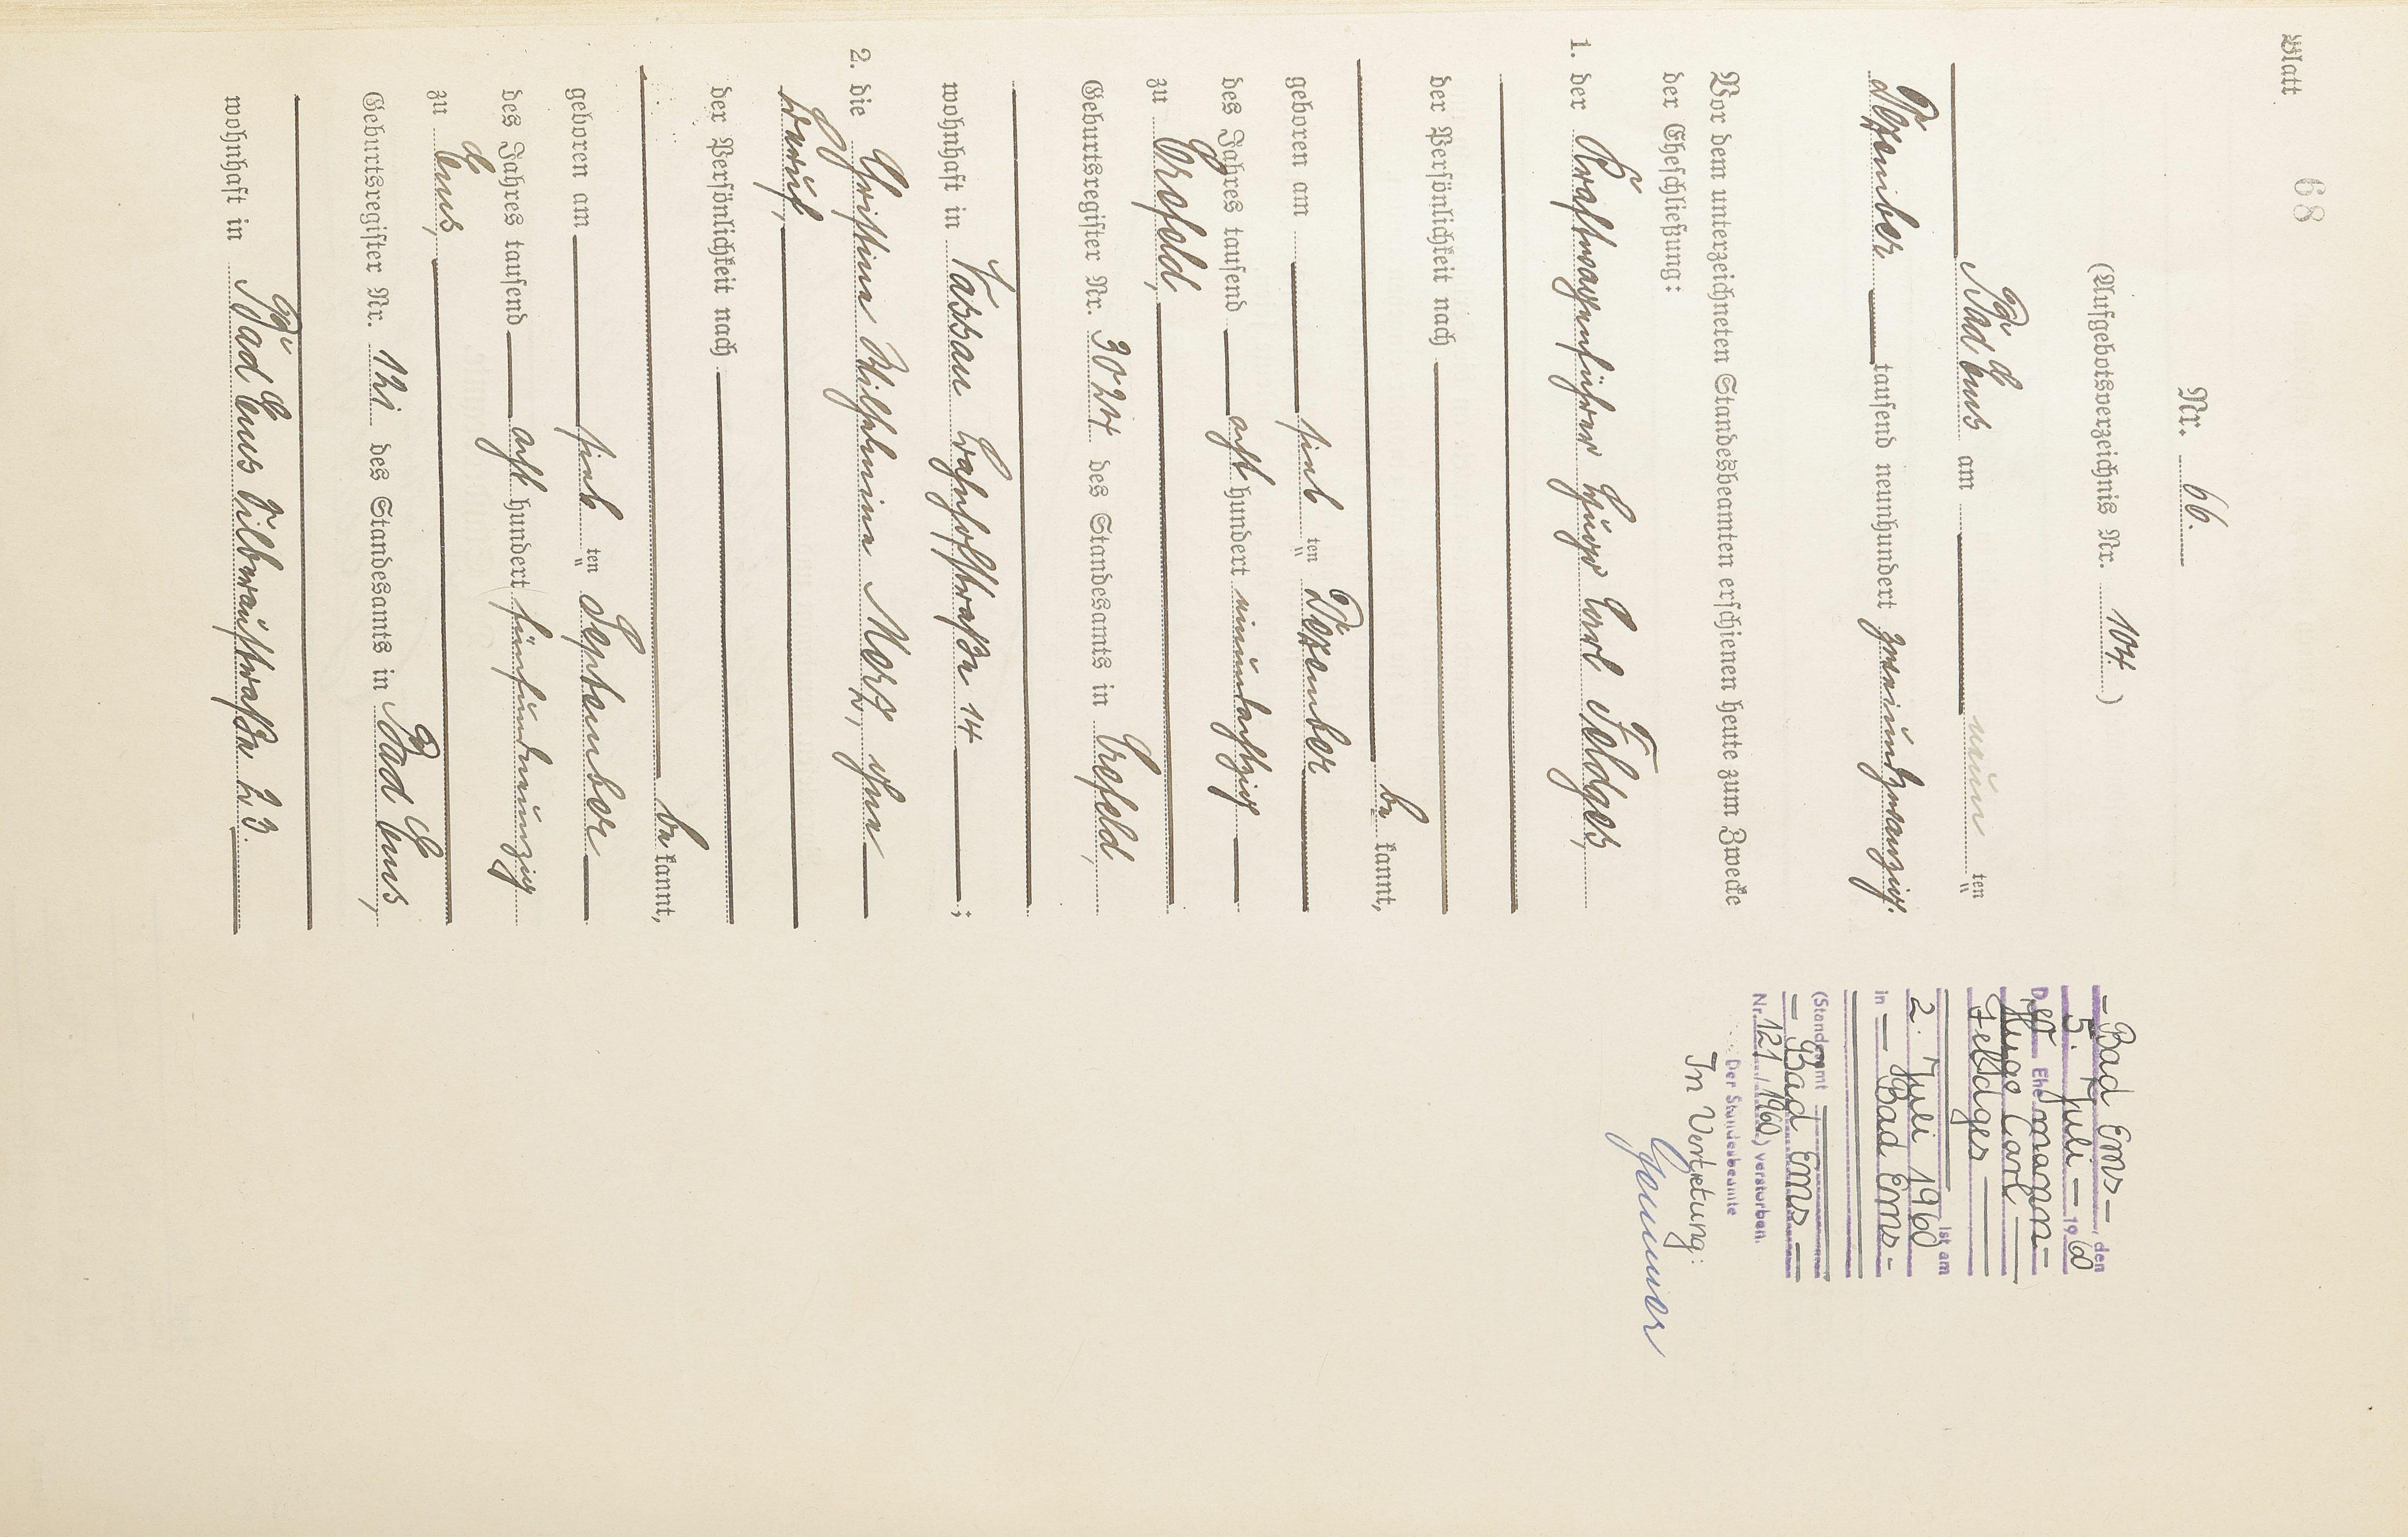 Blatt 68
Nr. 66.
(Aufgebotsverzeichnis Nr. 104.)
Bad Ems am neun ten
Dezember tausend neunhundert zweiundzwanzig.
Vor dem unterzeichneten Standesbeamten erschienen heute zum Zwecke
der Eheschließung:
1. der Kraftwagenführer Hugo Carl Feldges,
der Persönlichkeit nach
be kannt,
geboren am fünf ten Dezember
des Jahres tausend acht hundert neunundachtzig
zu Crefeld,
Geburtsregister Nr. 3024 des Standesamts in Crefeld,
wohnhaft in Nassau Bahnhofstraße 14 ;
2. die Christine Wilhelmine Merz, ohne
Beruf,
der Persönlichkeit nach
be kannt,
geboren am fünf ten September
des Jahres tausend acht hundert fünfundneunzig
zu Ems,
Geburtsregister Nr. 121 des Standesamts in Bad Ems,
wohnhaft in Bad Ems Silberaustraße 23.
- Bad Ems -, den
5. Juli - 1960
Der Ehemann -
Hugo Carl
Feldges
ist am
2. Juli 1960
in - Bad Ems -
(Standesamt
- Bad Ems -
Nr. 121 / 1960) verstorben.
Der Standesbeamte
In Vertretung: